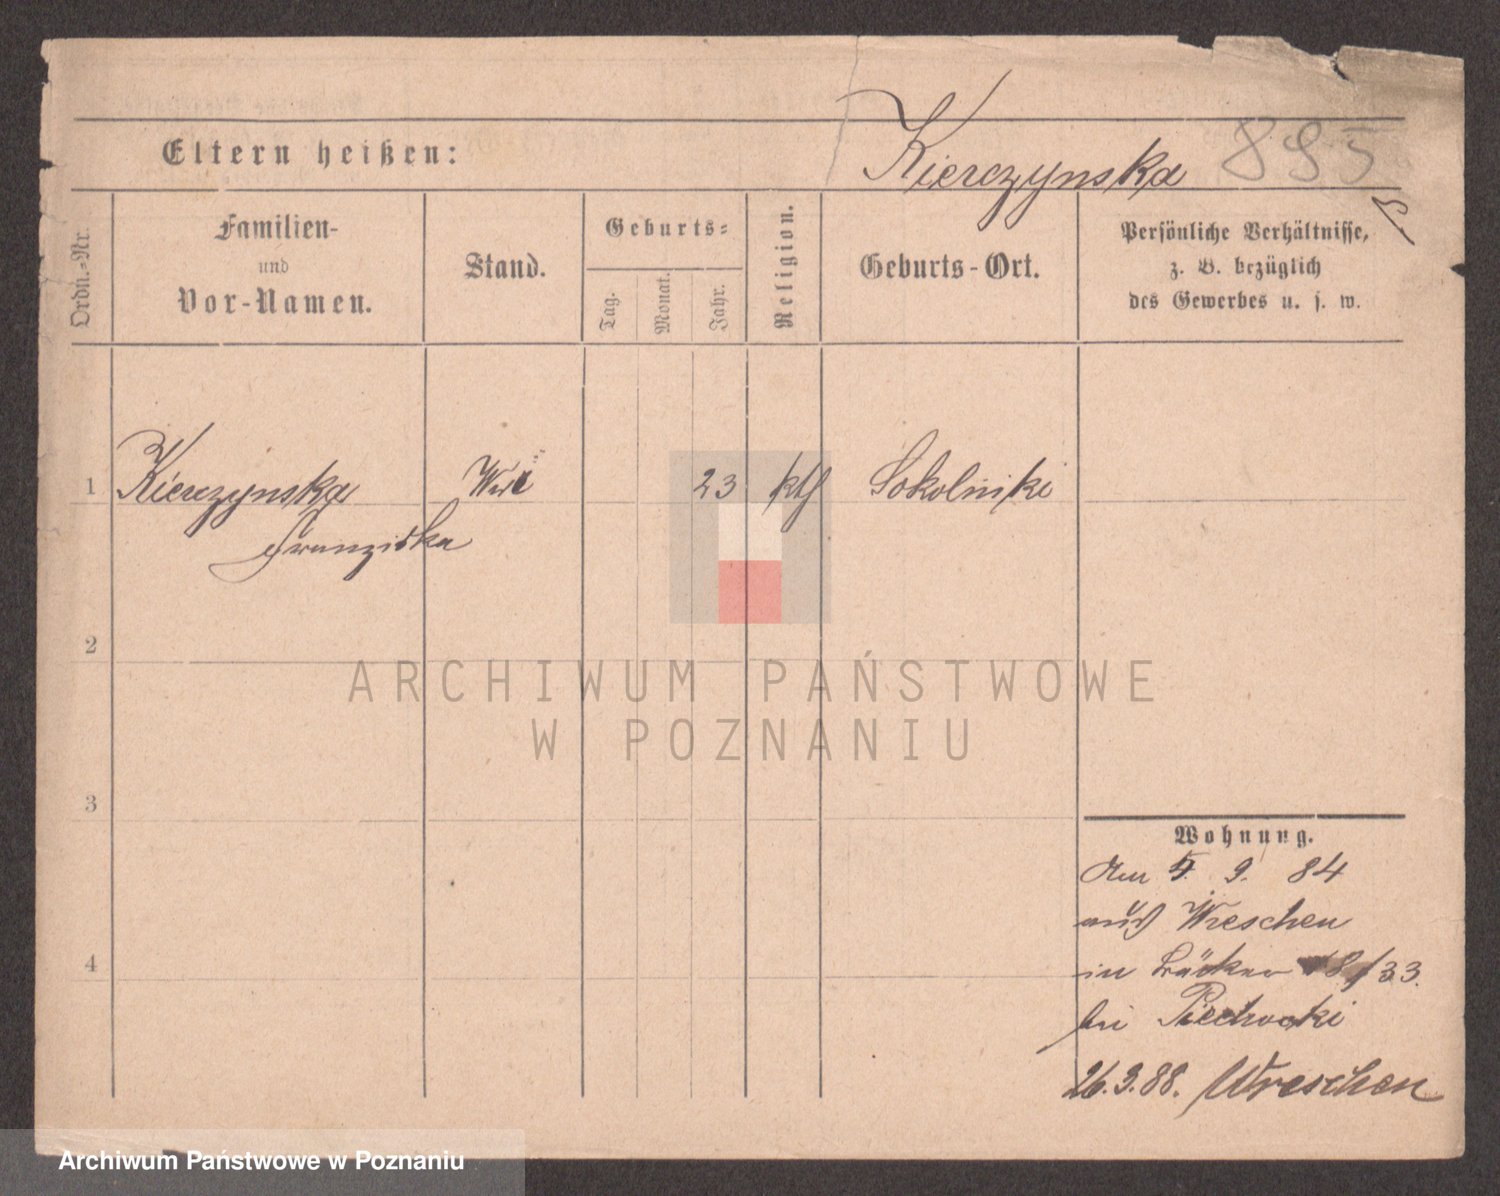 Kierczynska 895
Eltern heißen:
Ordn.-Nr.
Familien-
und
Vor-Namen.
Stand.
Geburts-
Tag.
Monat.
Jahr.
Religion.
Geburts-Ort.
Persönliche Verhältnisse,
z. B. bezüglich
des Gewerbes u. s. w.
1 Kierczynska 23 kth Sokolniki
Franziska
2
3
4
Wohnung.
9. 84
aus Wreschen
in 33.
bei Piechocki
26.3.88. Wreschen
ARCHIWUM PAŃSTWOWE
W POZNANIU
Archiwum Państwowe w Poznaniu